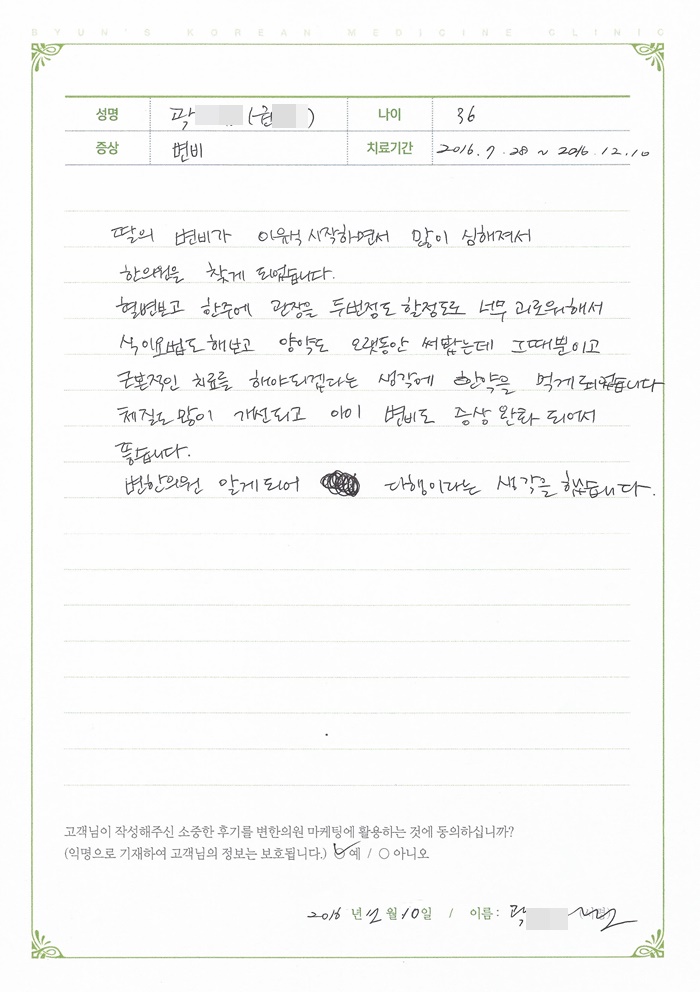 BYUN'S KOREAN MEDICINE CLINIC
성명 곽 ( ) 나이 36
증상 변비 치료기간 2016.7.28 ~ 2016.12.10
딸의 변비가 이유식 시작하면서 많이 심해져서
한의원을 찾게 되었습니다.
혈변보고 한주에 관장을 두번정도 할정도로 너무 괴로워해서
식이요법도 해보고 양약도 오랫동안 써봤는데 그때뿐이고
근본적인 치료를 해야되겠다는 생각에 한약을 먹게되었습니다
체질도 많이 개선되고 아이 변비도 증상 완화 되어서
좋습니다.
변한의원 알게되어 다행이라는 생각을 했습니다.
고객님이 작성해주신 소중한 후기를 변한의원 마케팅에 활용하는 것에 동의하십니까?
(익명으로 기재하여 고객님의 정보는 보호됩니다.) 예 / 아니오
2016 년 12 월 10 일 / 이름 : 곽